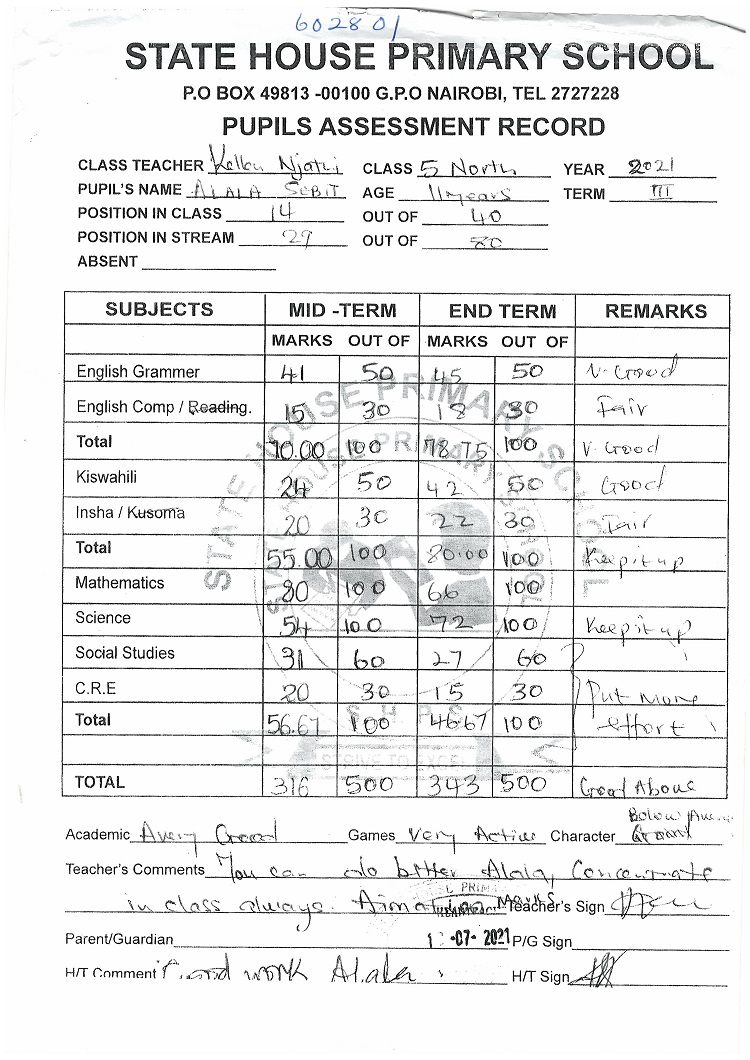 602801
STATE HOUSE PRIMARY SCHOOL
P.O BOX 49813 -00100 G.P.O NAIROBI, TEL 2727228
PUPILS ASSESSMENT RECORD
CLASS TEACHER Kellen Njathi CLASS 5 North YEAR 2021
PUPIL'S NAME ALALA SEBIT AGE 11 years TERM III
POSITION IN CLASS 14 OUT OF 40
POSITION IN STREAM 29 OUT OF 80
ABSENT
SUBJECTS MID -TERM END TERM REMARKS
MARKS OUT OF MARKS OUT OF
English Grammer 41 50 45 50 V. Good
English Comp / Reading. 15 30 18 30 Fair
Total 70.00 100 78.75 100 V. Good
Kiswahili 24 50 42 50 Good
Insha / Kusoma 20 30 22 30 Fair
Total 55.00 100 80.00 100 Keep it up
Mathematics 80 100 66 100
Science 54 100 72 100 Keep it up
Social Studies 31 60 27 60
C.R.E 20 30 15 30 Put More
Total 56.67 100 46.67 100 effort
TOTAL 316 500 343 500 Good Above
Below Aver
Academic A very Good Games Very Active Character
Teacher's Comments You can do better Alala, Concentrate
in class always. Aim at Marks Teacher's Sign
Parent/Guardian -07- 2021 P/G Sign
H/T Comment Good work Alala H/T Sign
STATE HOUSE PRIMARY SCHOOL
S.H.P.S
STRIVE TO EXCEL